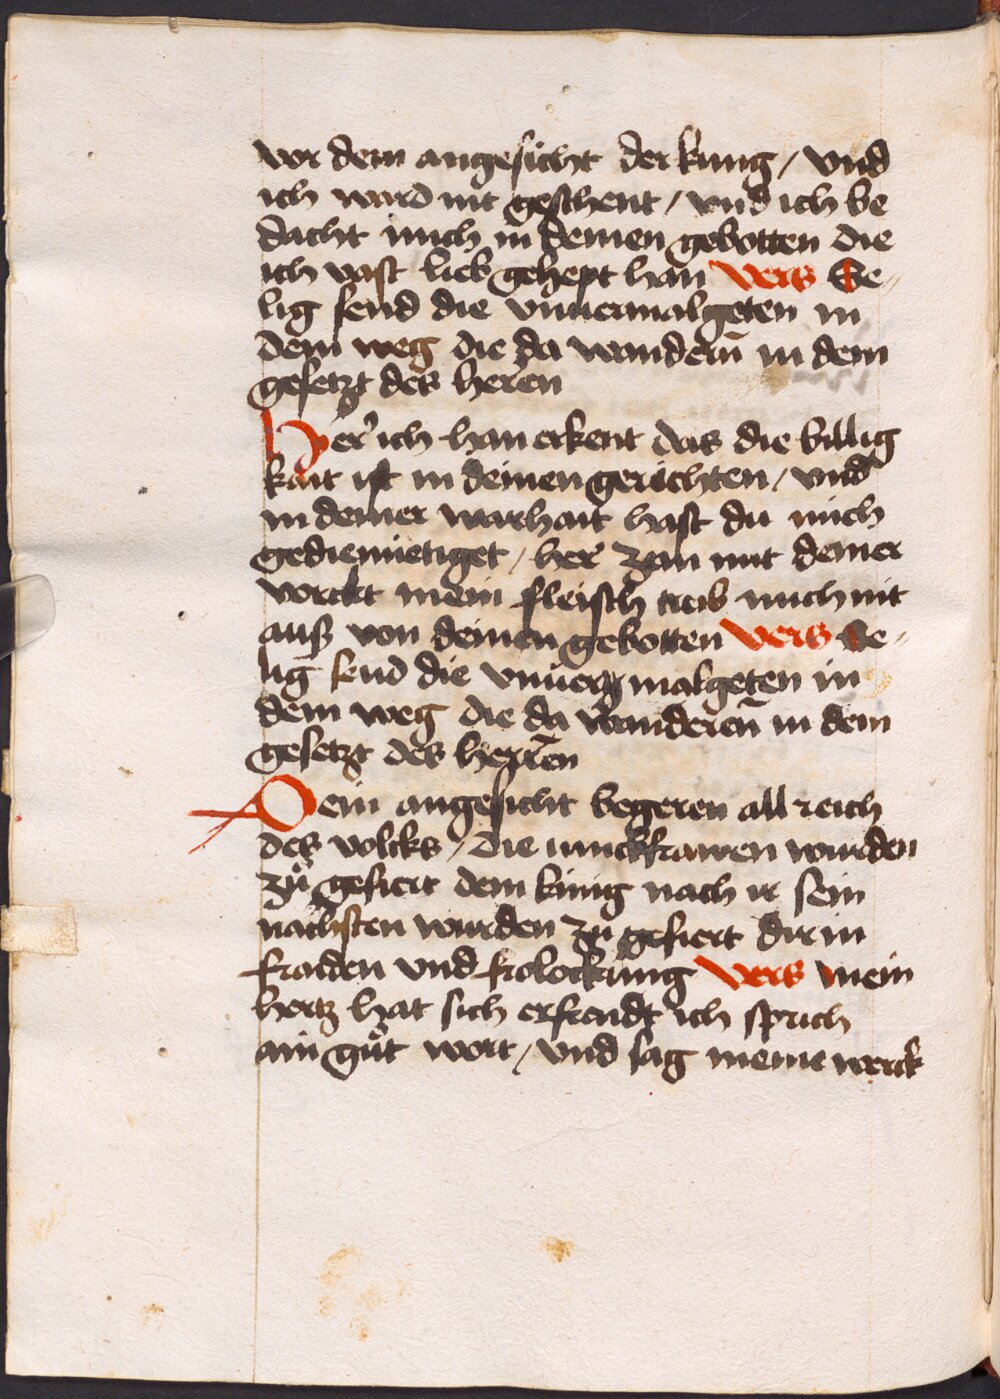 vor dem angesicht der kung / vnd
ich ward nit geschent / vnd ich be
dacht mich in deinen gebotten die
ich vast lieb gehept han Vers Se-
lig send die vnuermalgeten in
dem weg die da wanderñ in dem
gesetzt des heren
Her ich han erkent das die billig
kait ist in deinen gerichten / vnd
in deiner warhait hast du mich
gediemietiget / her zam mit deiner
vorcht mein fleisch treib mich nit
auß von deinen gebotten Vers Se-
lig send die vnuer malgeten in
dem weg die da wanderen̄ in dem
gesetzt des herren
Dein angesicht begeren all reich
des volcks / die iunckfrawen wurden
zů gefiert dem kinig nach ir sein
nächsten wurden zů gefiert dir in
fraiden vnd frolockung Vers mein
hertz hat sich erfraidt ich sprich
ain gůt wort / vnd sag meine werck